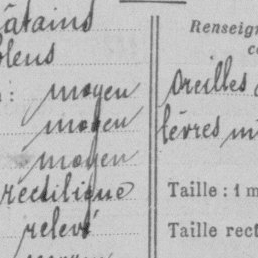 âtains
bleus
: moyen
moyen
moyen
rectiligne
relevé
Renseig
c
Oreilles
lèvres mi
Taille : 1 m
Taille rect